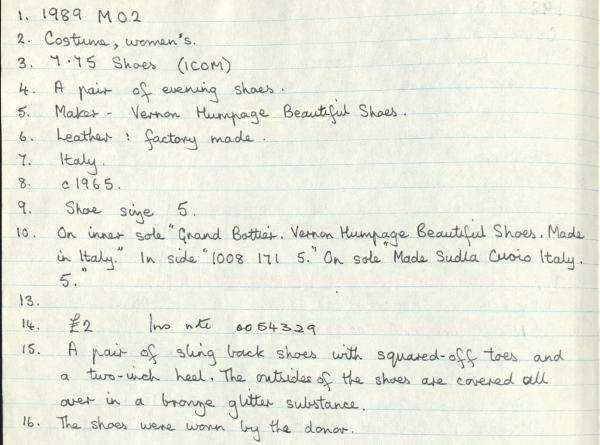 1. 1989 M02
2. Costume, women's.
3. 7.75 Shoes (ICOM)
4. A pair of evening shoes.
5. Maker - Vernon Humpage Beautiful Shoes.
6. Leather : factory made.
7. Italy.
8. c1965.
9. Shoe size 5.
10. On inner sole "Grand Bottier. Vernon Humpage Beautiful Shoes. Made
in Italy." In side "1008 171 5." On sole "Made Sudla Cuoio Italy.
5."
13.
14. £2 Ins note 0054329
15. A pair of sling back shoes with squared-off toes and
a two-inch heel. The outsides of the shoes are covered all
over in a bronze glitter substance.
16. The shoes were worn by the donor.